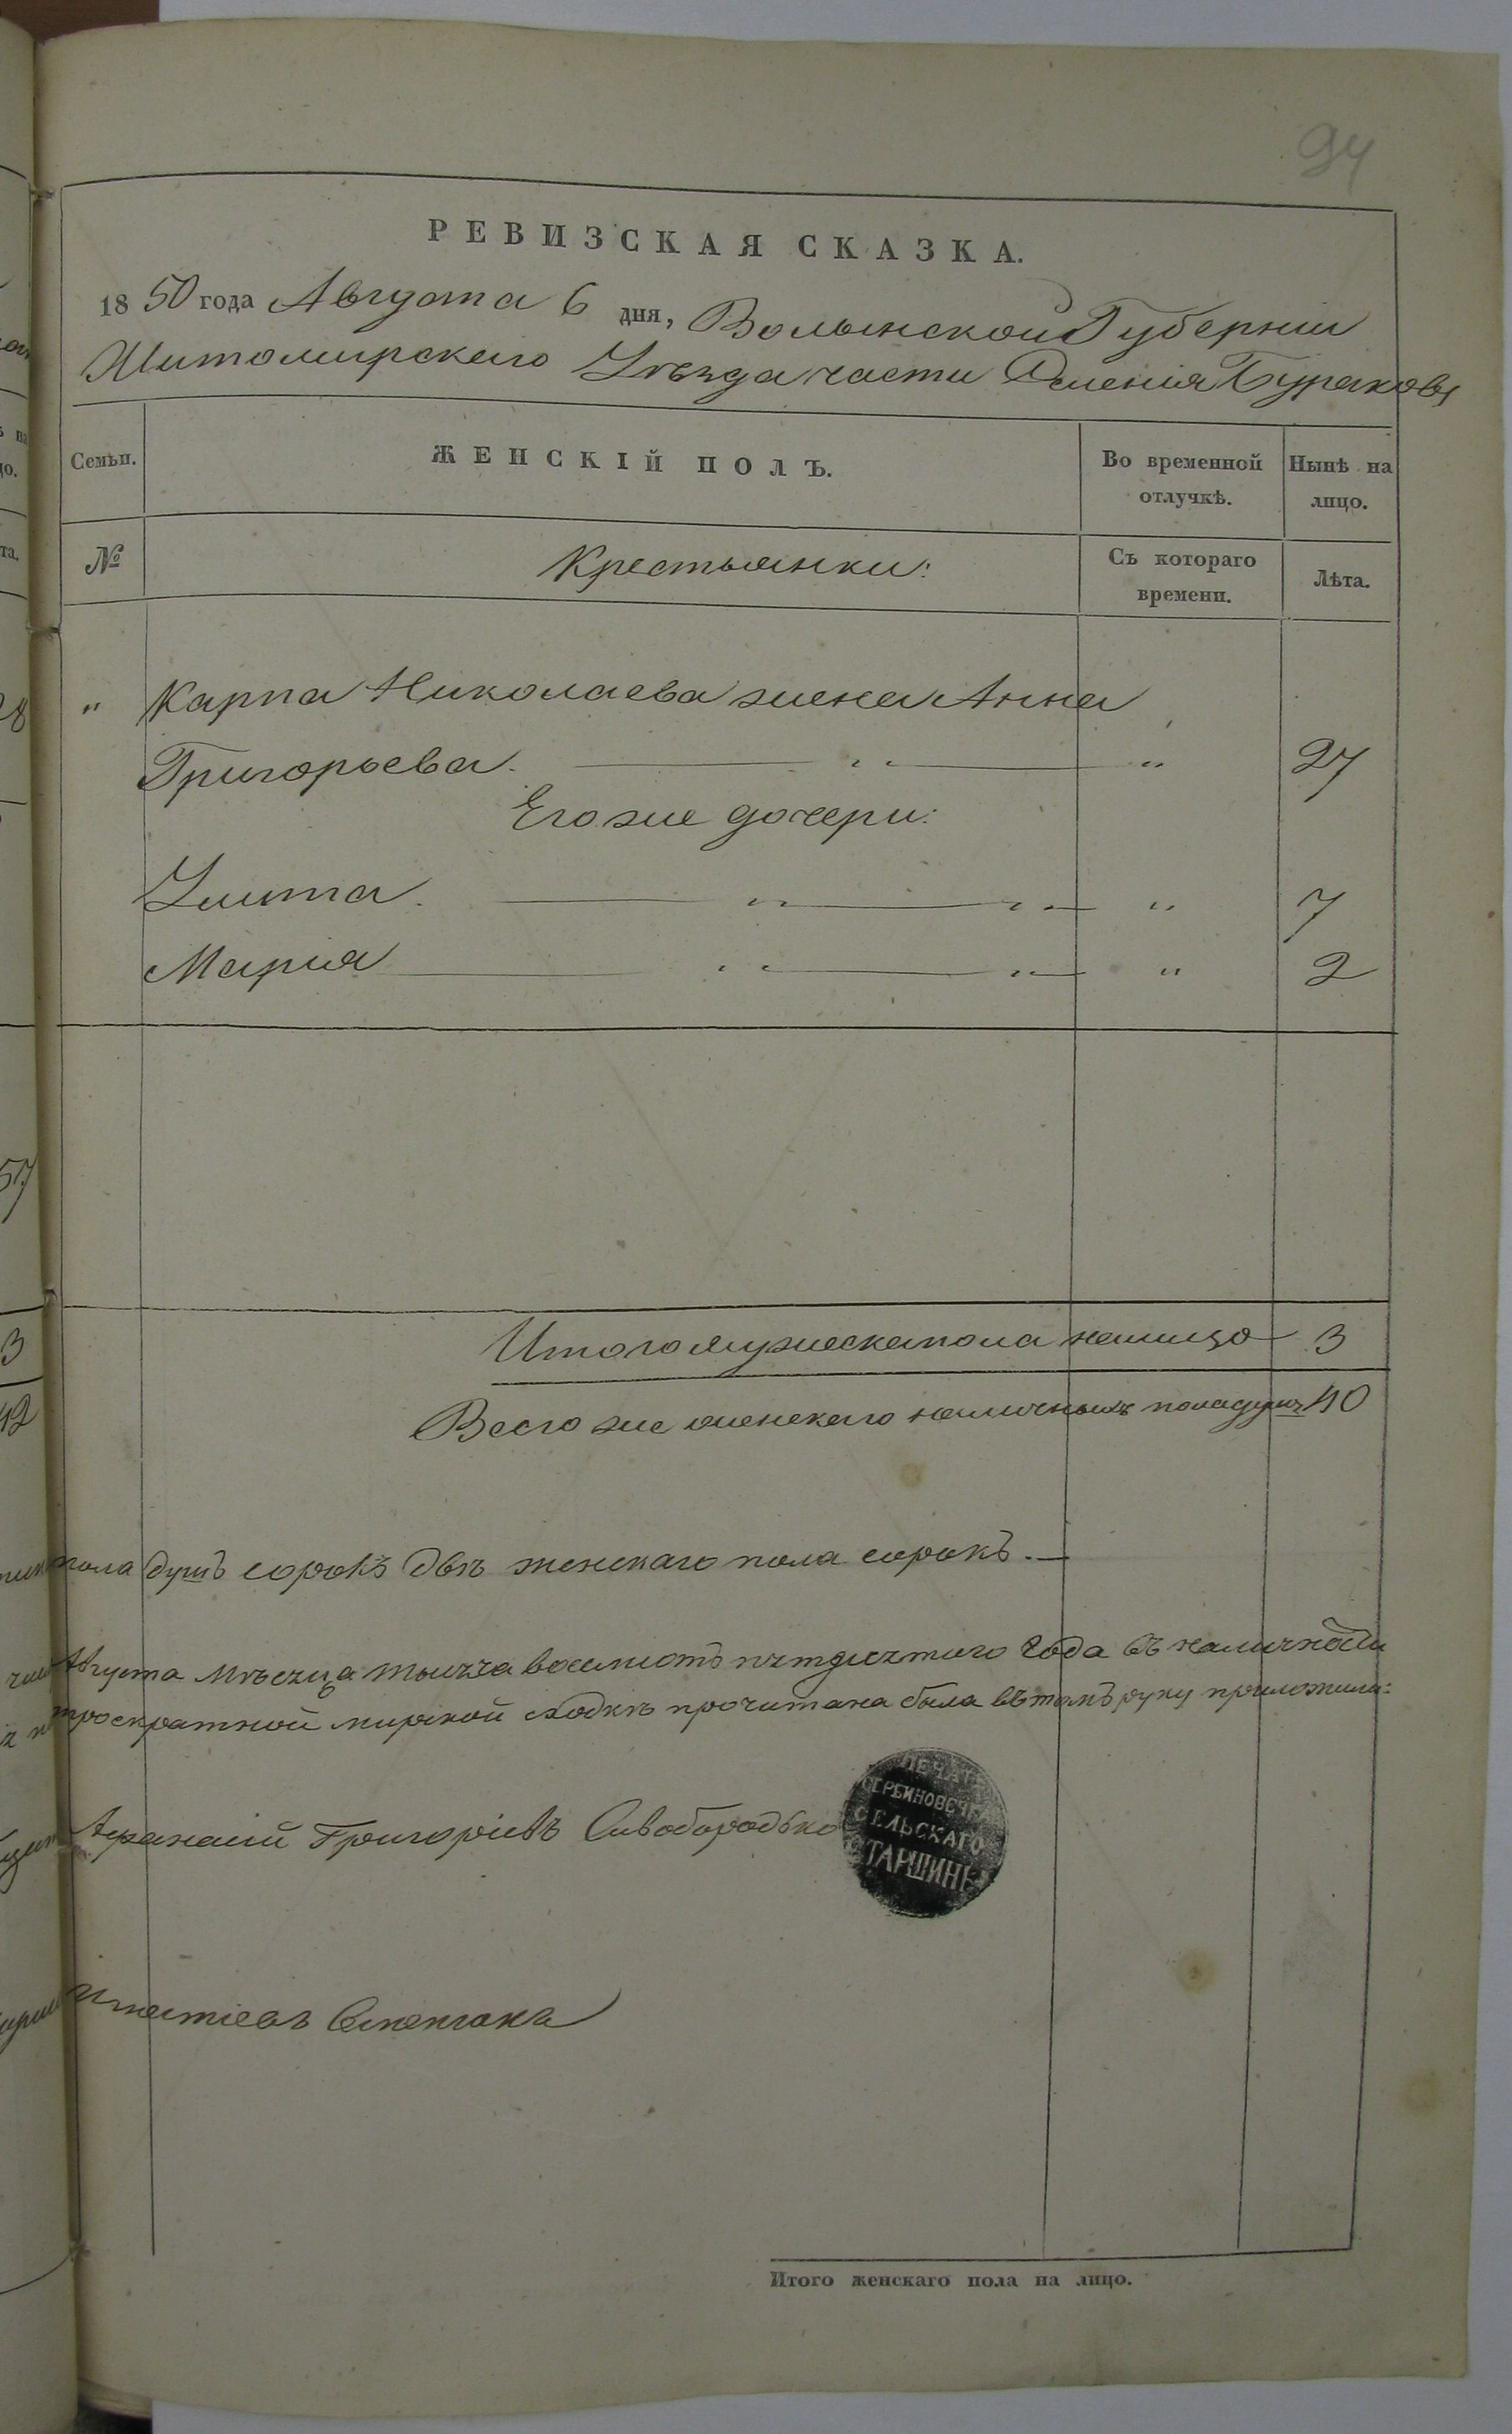 94
РЕВИЗСКАЯ СКАЗКА.
1850 года Августа 6 дня, Волынской Губернiи
Житомирскаго Уѣзда части Селенiя Бураковы
Семьи. ЖЕНСКІЙ ПОЛЪ. Во временной отлучкѣ. Нынѣ на лицо.
№ Крестьянки: Съ котораго времени. Лѣта.
" Карпа Николаева жена Анна
Григорьева. " " 27
Его же дочери:
Улита. " " " 7
Марiя " " " 2
Итого мужеска пола налицо 3
Всего же женскаго наличныхъ пола душъ 40
пола душъ сорокъ двѣ женскаго пола сорокъ.
Августа мѣсяца тысяча восемсотъ пятдесятого года въ наличности
троекратной мирской сходкѣ прочитана была въ томъ руку приложили:
Афанасiй Григорiевъ Сивобородько
ПЕЧАТЬ
СЕЛЬСКАГО
СТАРШИНЫ
Игнатiевъ
Итого женскаго пола на лицо.